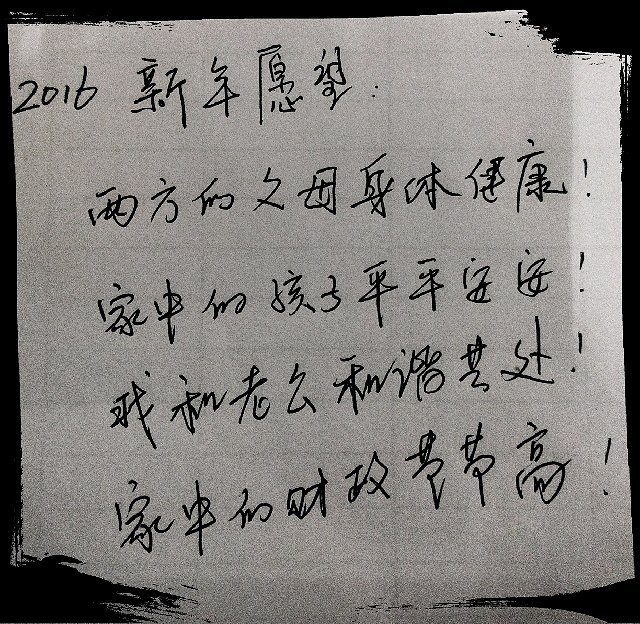 2016 新年愿望:
两方的父母身体健康!
家中的孩子平平安安!
我和老公和谐共处!
家中的财政节节高!